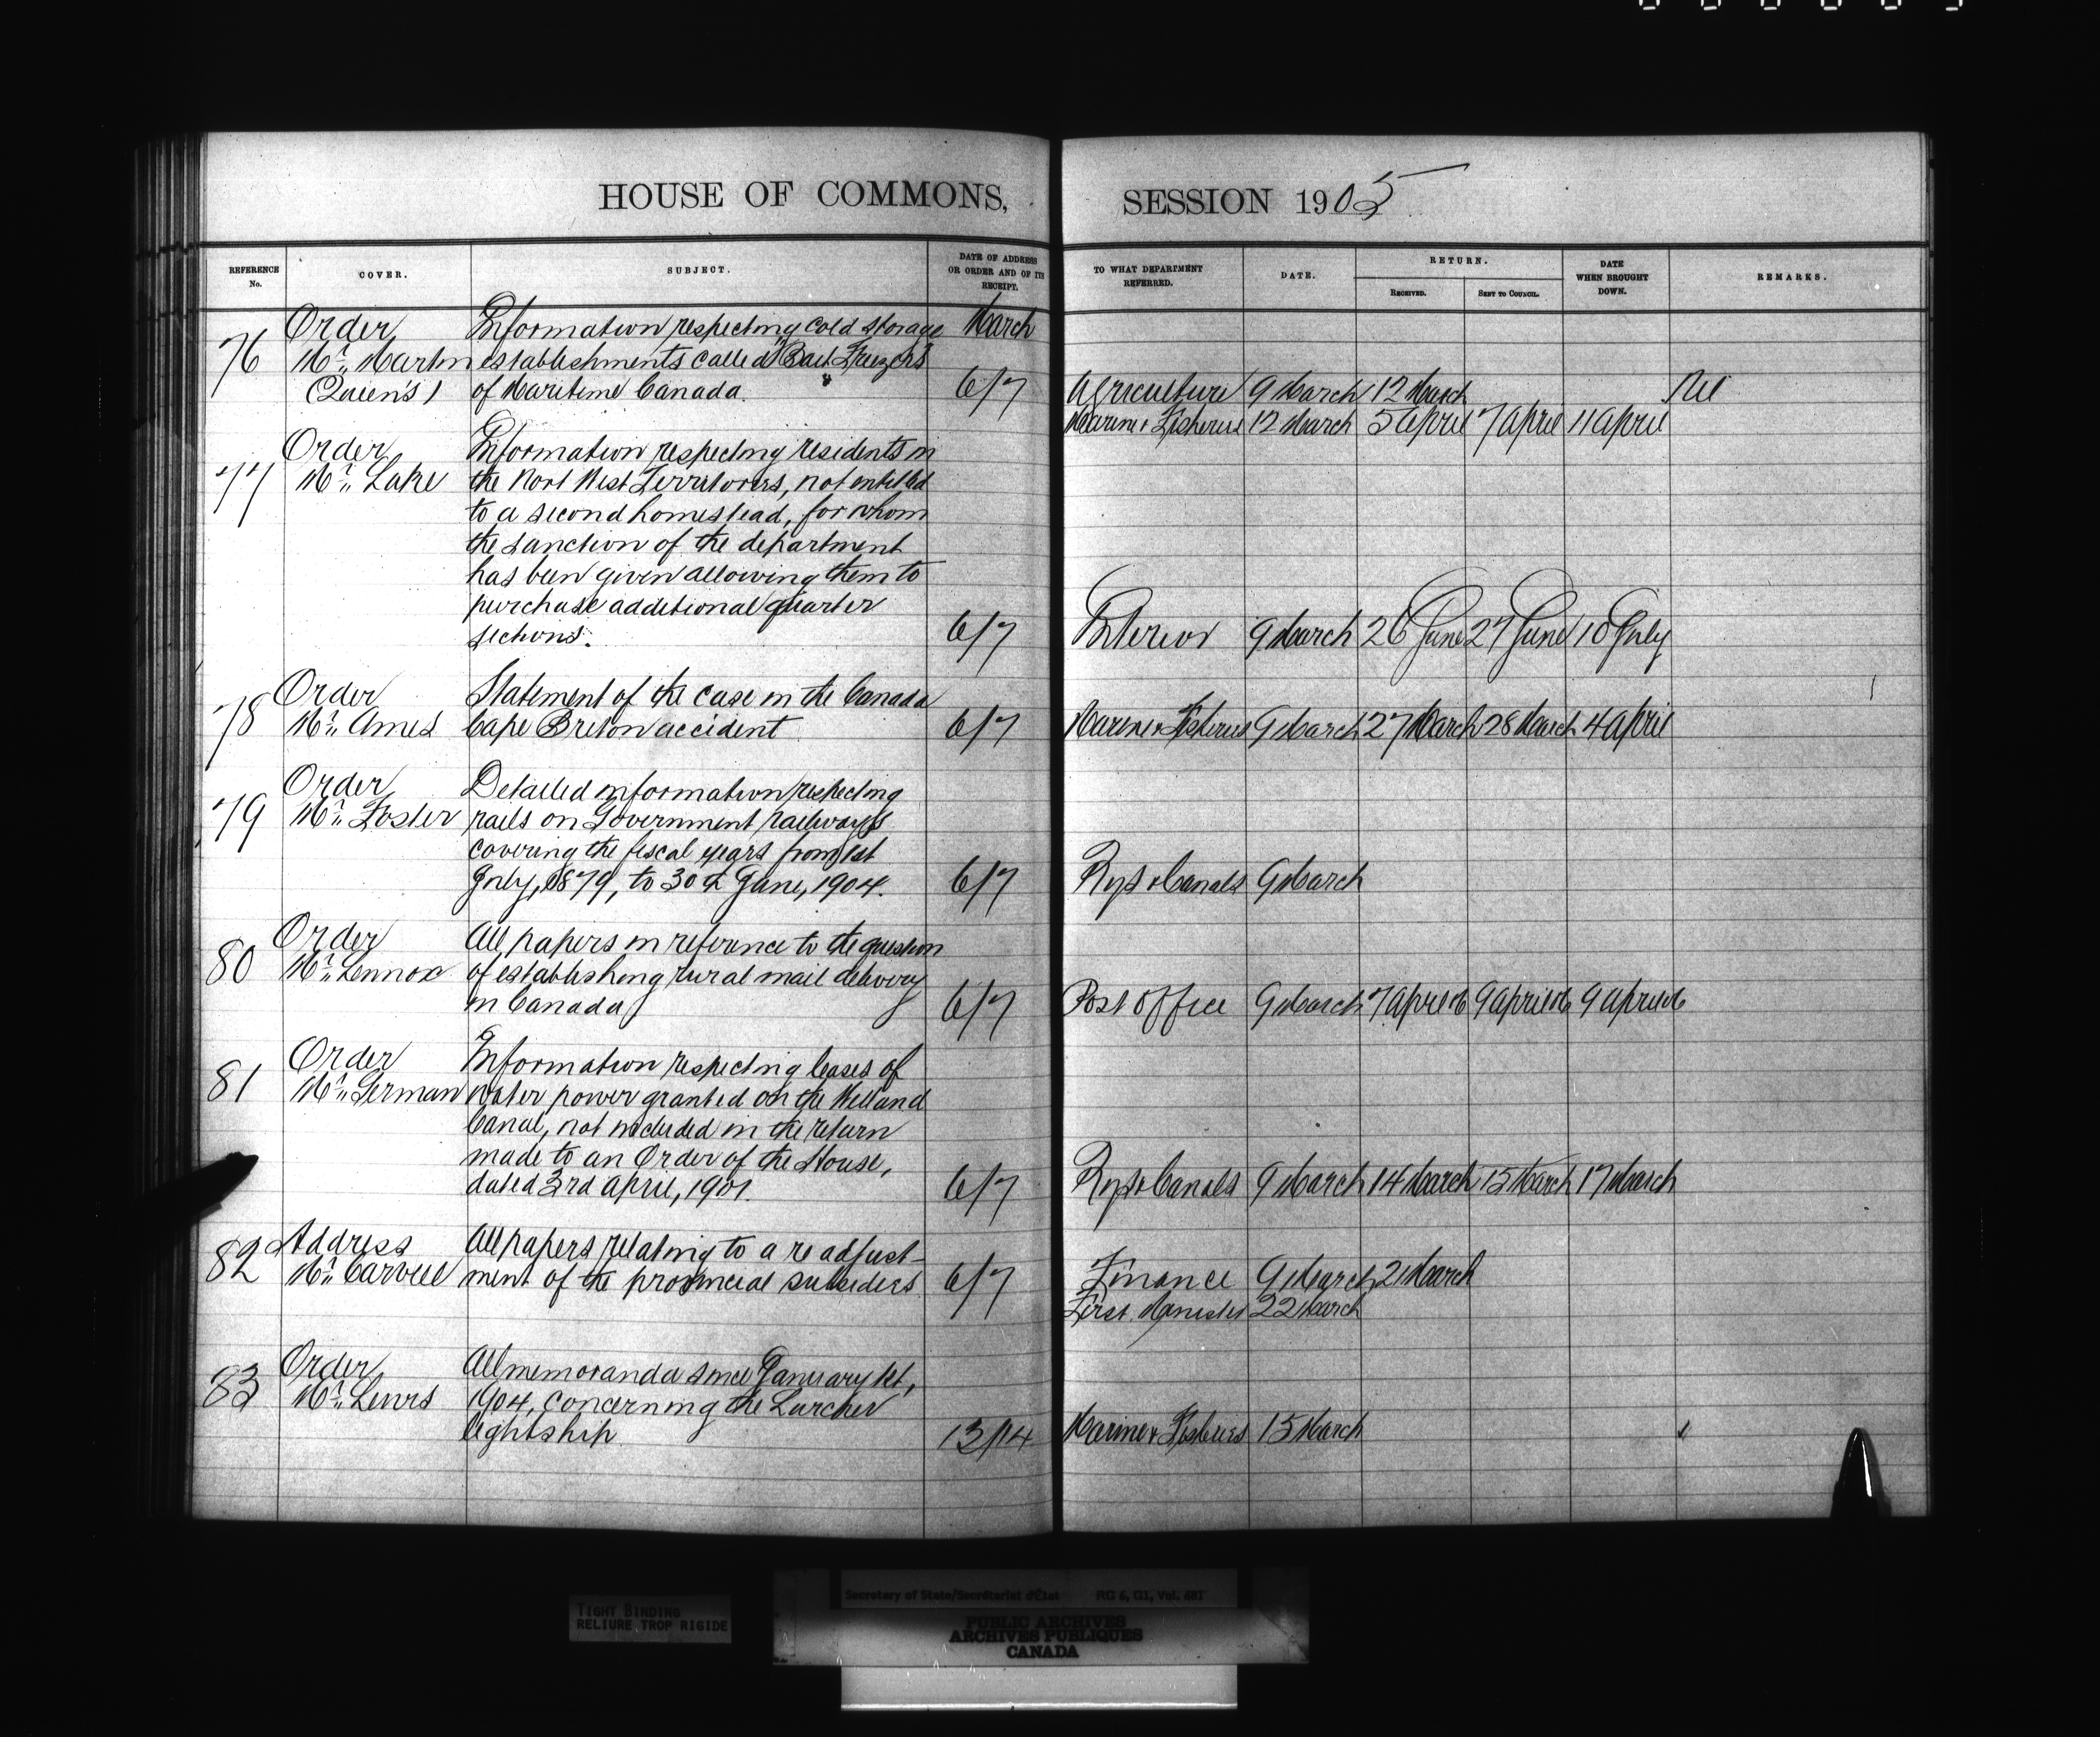 HOUSE OF COMMONS, SESSION 1905
REFERENCE No. COVER. SUBJECT. DATE OF ADDRESS OR ORDER AND OF ITS RECEIPT. TO WHAT DEPARTMENT REFERRED. DATE. RETURN. RECEIVED. SENT TO COUNCIL. DATE WHEN BROUGHT DOWN. REMARKS.
Order Information respecting cold storage March
76 Mr. Martin establishments called "Bait Freezers"
(Queen's) of Maritime Canada. 6/7 Agriculture 9 March 12 March Nil
Marine & Fisheries 12 March 5 April 7 April 11 April
Order Information respecting residents in
77 Mr. Lake the Nort West Territories, not entitled
to a second homestead, for whom
the sanction of the department
has been given allowing them to
purchase additional quarter
sections. 6/7 Interior 9 March 26 June 27 June 10 July
Order Statement of the case in the Canada
78 Mr. Ames Cape Breton accident 6/7 Marine & Fisheries 9 March 27 March 28 March 4 April
Order Detailed information respecting
79 Mr. Foster rails on Government railways
covering the fiscal years from 1st
July, 1879, to 30th June, 1904. 6/7 Rys & Canals 9 March
Order All papers in reference to the question
80 Mr. Lennox of establishing rural mail delivery
in Canada 6/7 Post Office 9 March 7 April 06 9 April 06 9 April 06
Order Information respecting leases of
81 Mr. German water power granted on the Welland
Canal, not included in the return
made to an Order of the House,
dated 3rd April, 1901. 6/7 Rys & Canals 9 March 14 March 15 March 17 March
Address All papers relating to a re adjust-
82 Mr. Carvell ment of the provincial subsidies 6/7 Finance 9 March 21 March
First Minister 22 March
Order All memoranda since January 1st,
83 Mr. Lewis 1904, concerning the Lurcher
lightship 13/14 Marine & Fisheries 15 March
TIGHT BINDING
RELIURE TROP RIGIDE
Secretary of State/Secrétariat d'État RG 6, G1, Vol. 481
PUBLIC ARCHIVES
ARCHIVES PUBLIQUES
CANADA